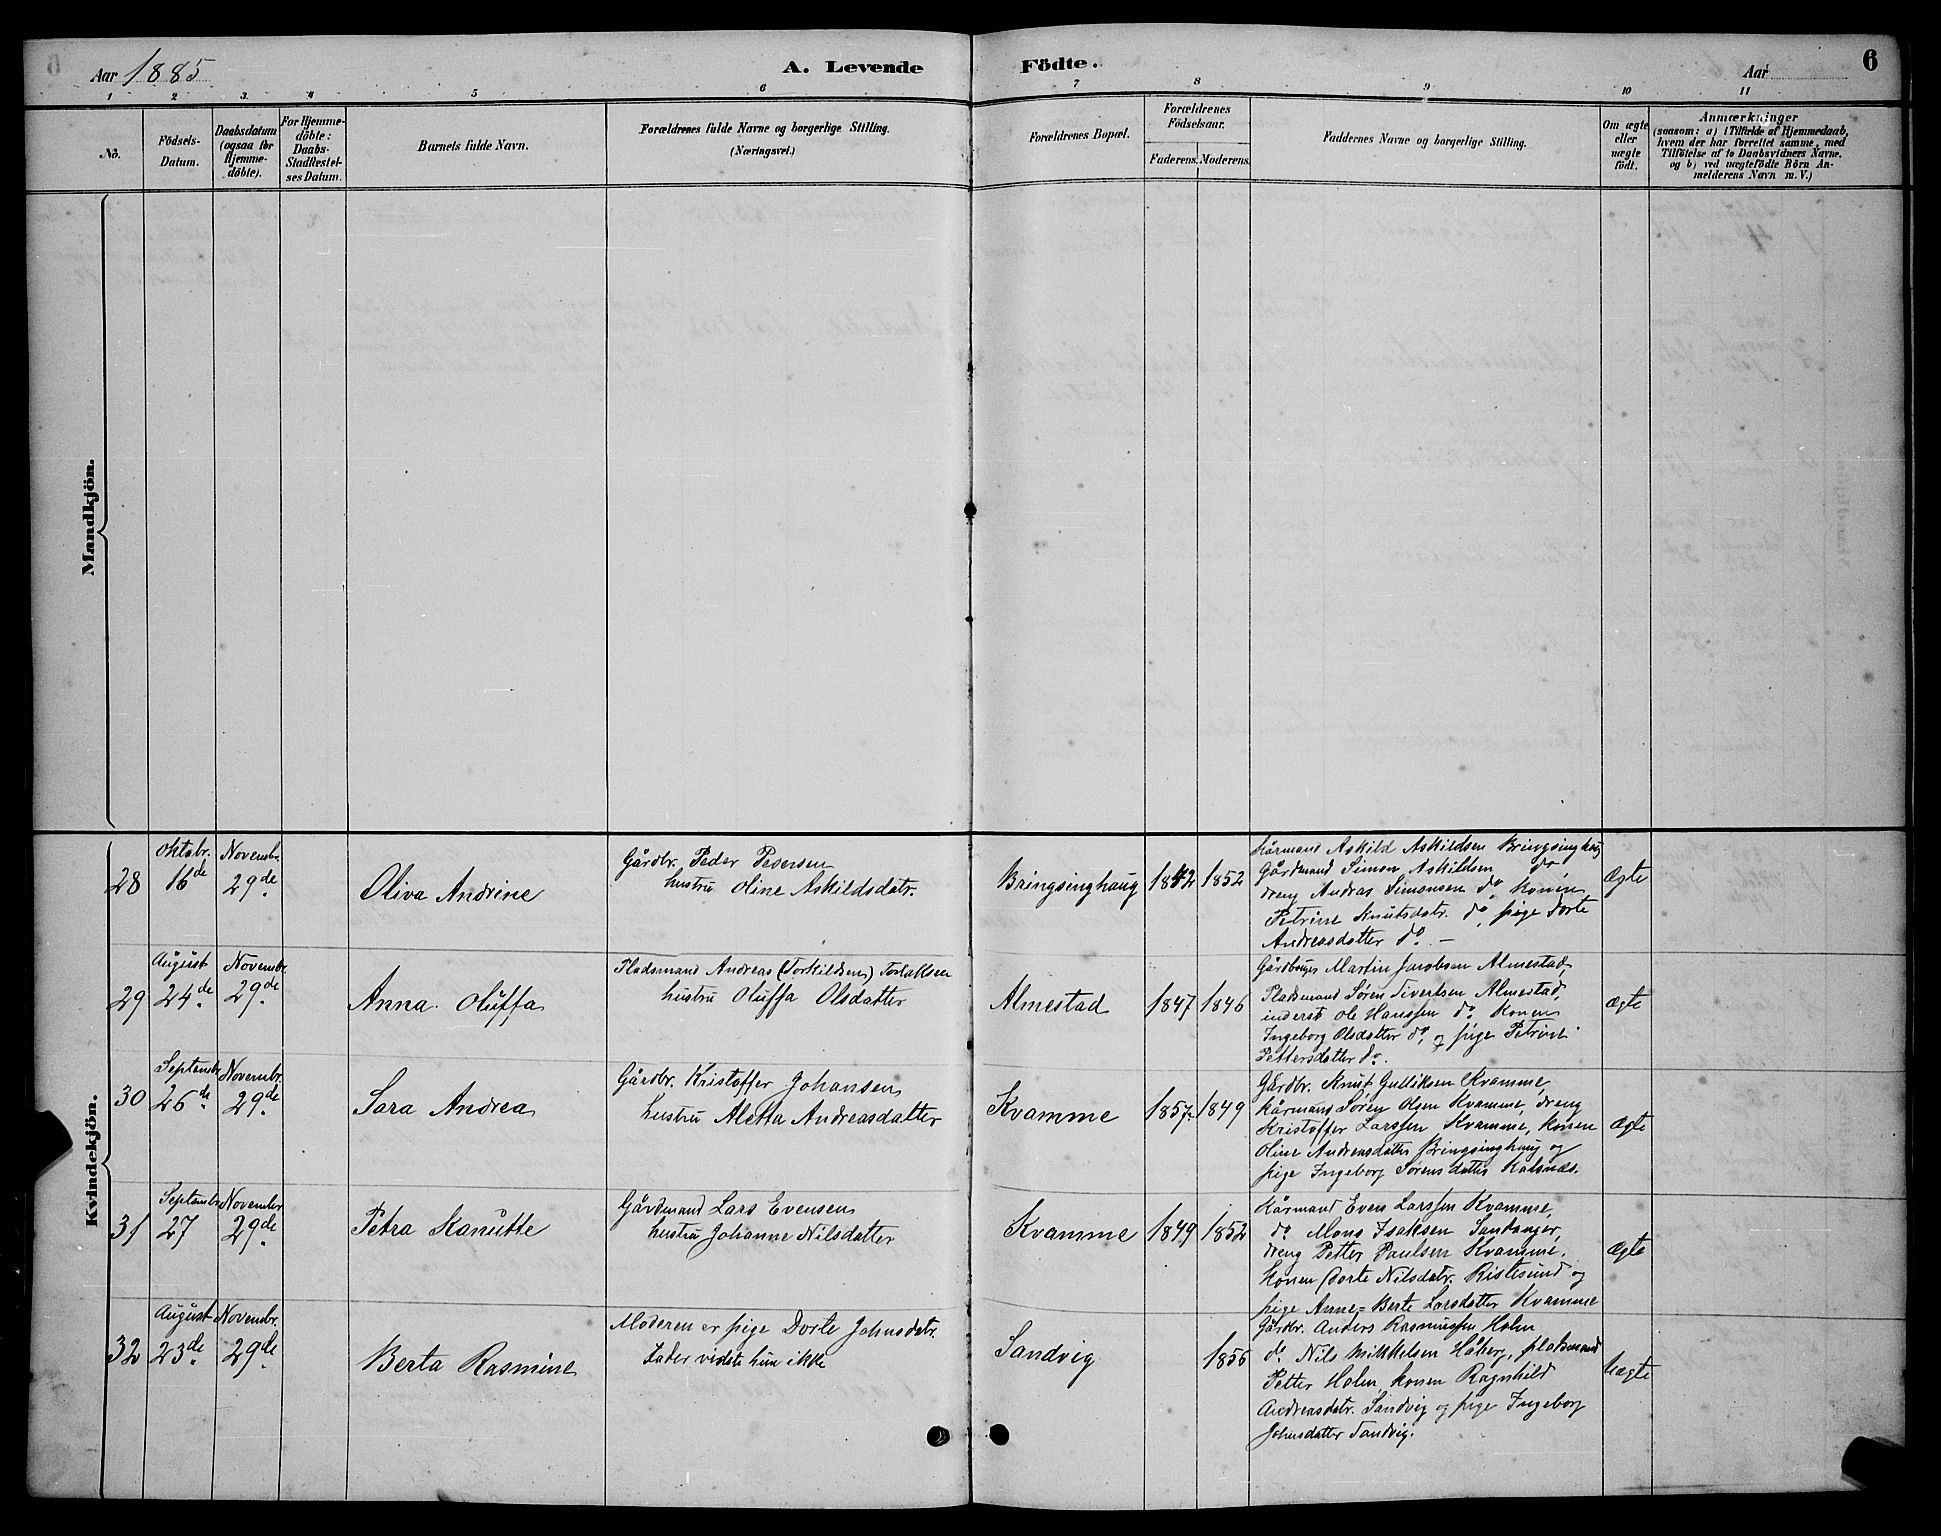 Aar 1885
A. Levende Födte.
Aar
6
1 2 3. 4 5 6 7 8 9 10 11
No.
Födsels-
Datum.
Daabsdatum
(ogsaa for
Hjemme-
döbte).
For Hjemme-
döbte:
Daabs-
Stadfæstel-
ses Datum.
Barnets fulde Navn.
Forældrenes fulde Navne og borgerlige Stilling.
(Næringsvei.)
Forældrenes Bopæl.
Forældrenes
Födselsaar.
Faderens. Moderens.
Faddernes Navne og borgerlige Stilling.
Om ægte
eller
uægte
födt.
Anmærkninger
(saasom: a) i Tilfælde af Hjemmedaab,
hvem der har forrettet samme, med
Tilföielse af to Daabsvidners Navne.
og b) ved uægtefödte Börn An-
melderens Navn m. V.)
Mandkjön.
Kvindekjön.
28
Oktobr.
16de
Novembr.
29de
Oliva Andrine
Gårdbr. Peder Pedersen
hustru Oline Askildsdatr.
Bringsinghaug
1842
1852
Kårmand Askild Askildsen Bringsinghaug
Gårdmand Simon Askildsen do
dreng Andras Simonsen do konen
Petrine Knutsdatr. do, pige Dorte
Andreasdatter do. —
Ægte
29
August
24de
Novembr.
29de
Anna Oluffa
Pladsmand Andreas (Torkildsen) Torlaksen
hustru Oluffa Olsdatter
Almestad
1847
1846
Gårdbruger Martin Jacobsen Almestad,
Pladsmand Søren Sivertsen Almestad,
inderst Ole Hanssen do Konen
Ingeborg Olsdatter do, og pige Petrine
Pettersdatter do.
Ægte
30
Septembr.
26de
Novembr.
29de
Sara Andrea
Gårdbr. Kristoffer Johansen
hustru Aletta Andreasdatter
Kvamme
1857
1849
Gårdbr. Knut Gulliksen Kvamme,
kårmand Søren Olsen Kvamme, dreng
Kristoffer Larssen Kvamme, konen
Oline Andreasdatter Bringsinghaug og
pige Ingeborg Sørensdatter Kalsnæs.
Ægte
31
Septembr
27
November
29de
Petra Kanutte
Gårdmand Lars Evensen
hustru Johanne Nilsdatter
Kvamme
1849
1852
Kårmand Even Larssen Kvamme,
do Mons Isaksen Sandanger,
dreng Petter Paulsen Kvamme.
Konen Dorte Nilsdatr. Ristesund og
pige Anne-Berte Larsdatter Kvamme
Ægte
32
August
23de
Novembr.
29de
Berta Rasmine
Moderen er pige Dorte Johnsdatr.
Fader vidste hun ikke
Sandvig
1856
Gårdbr. Anders Rasmussen Holm
do Nils Mikkelsen Haaberg, pladsmand
Petter Holm, konen Ragnhild
Andreasdatr. Sandvig og pige Ingeborg
Johnsdatter Sandvig.
Uægte